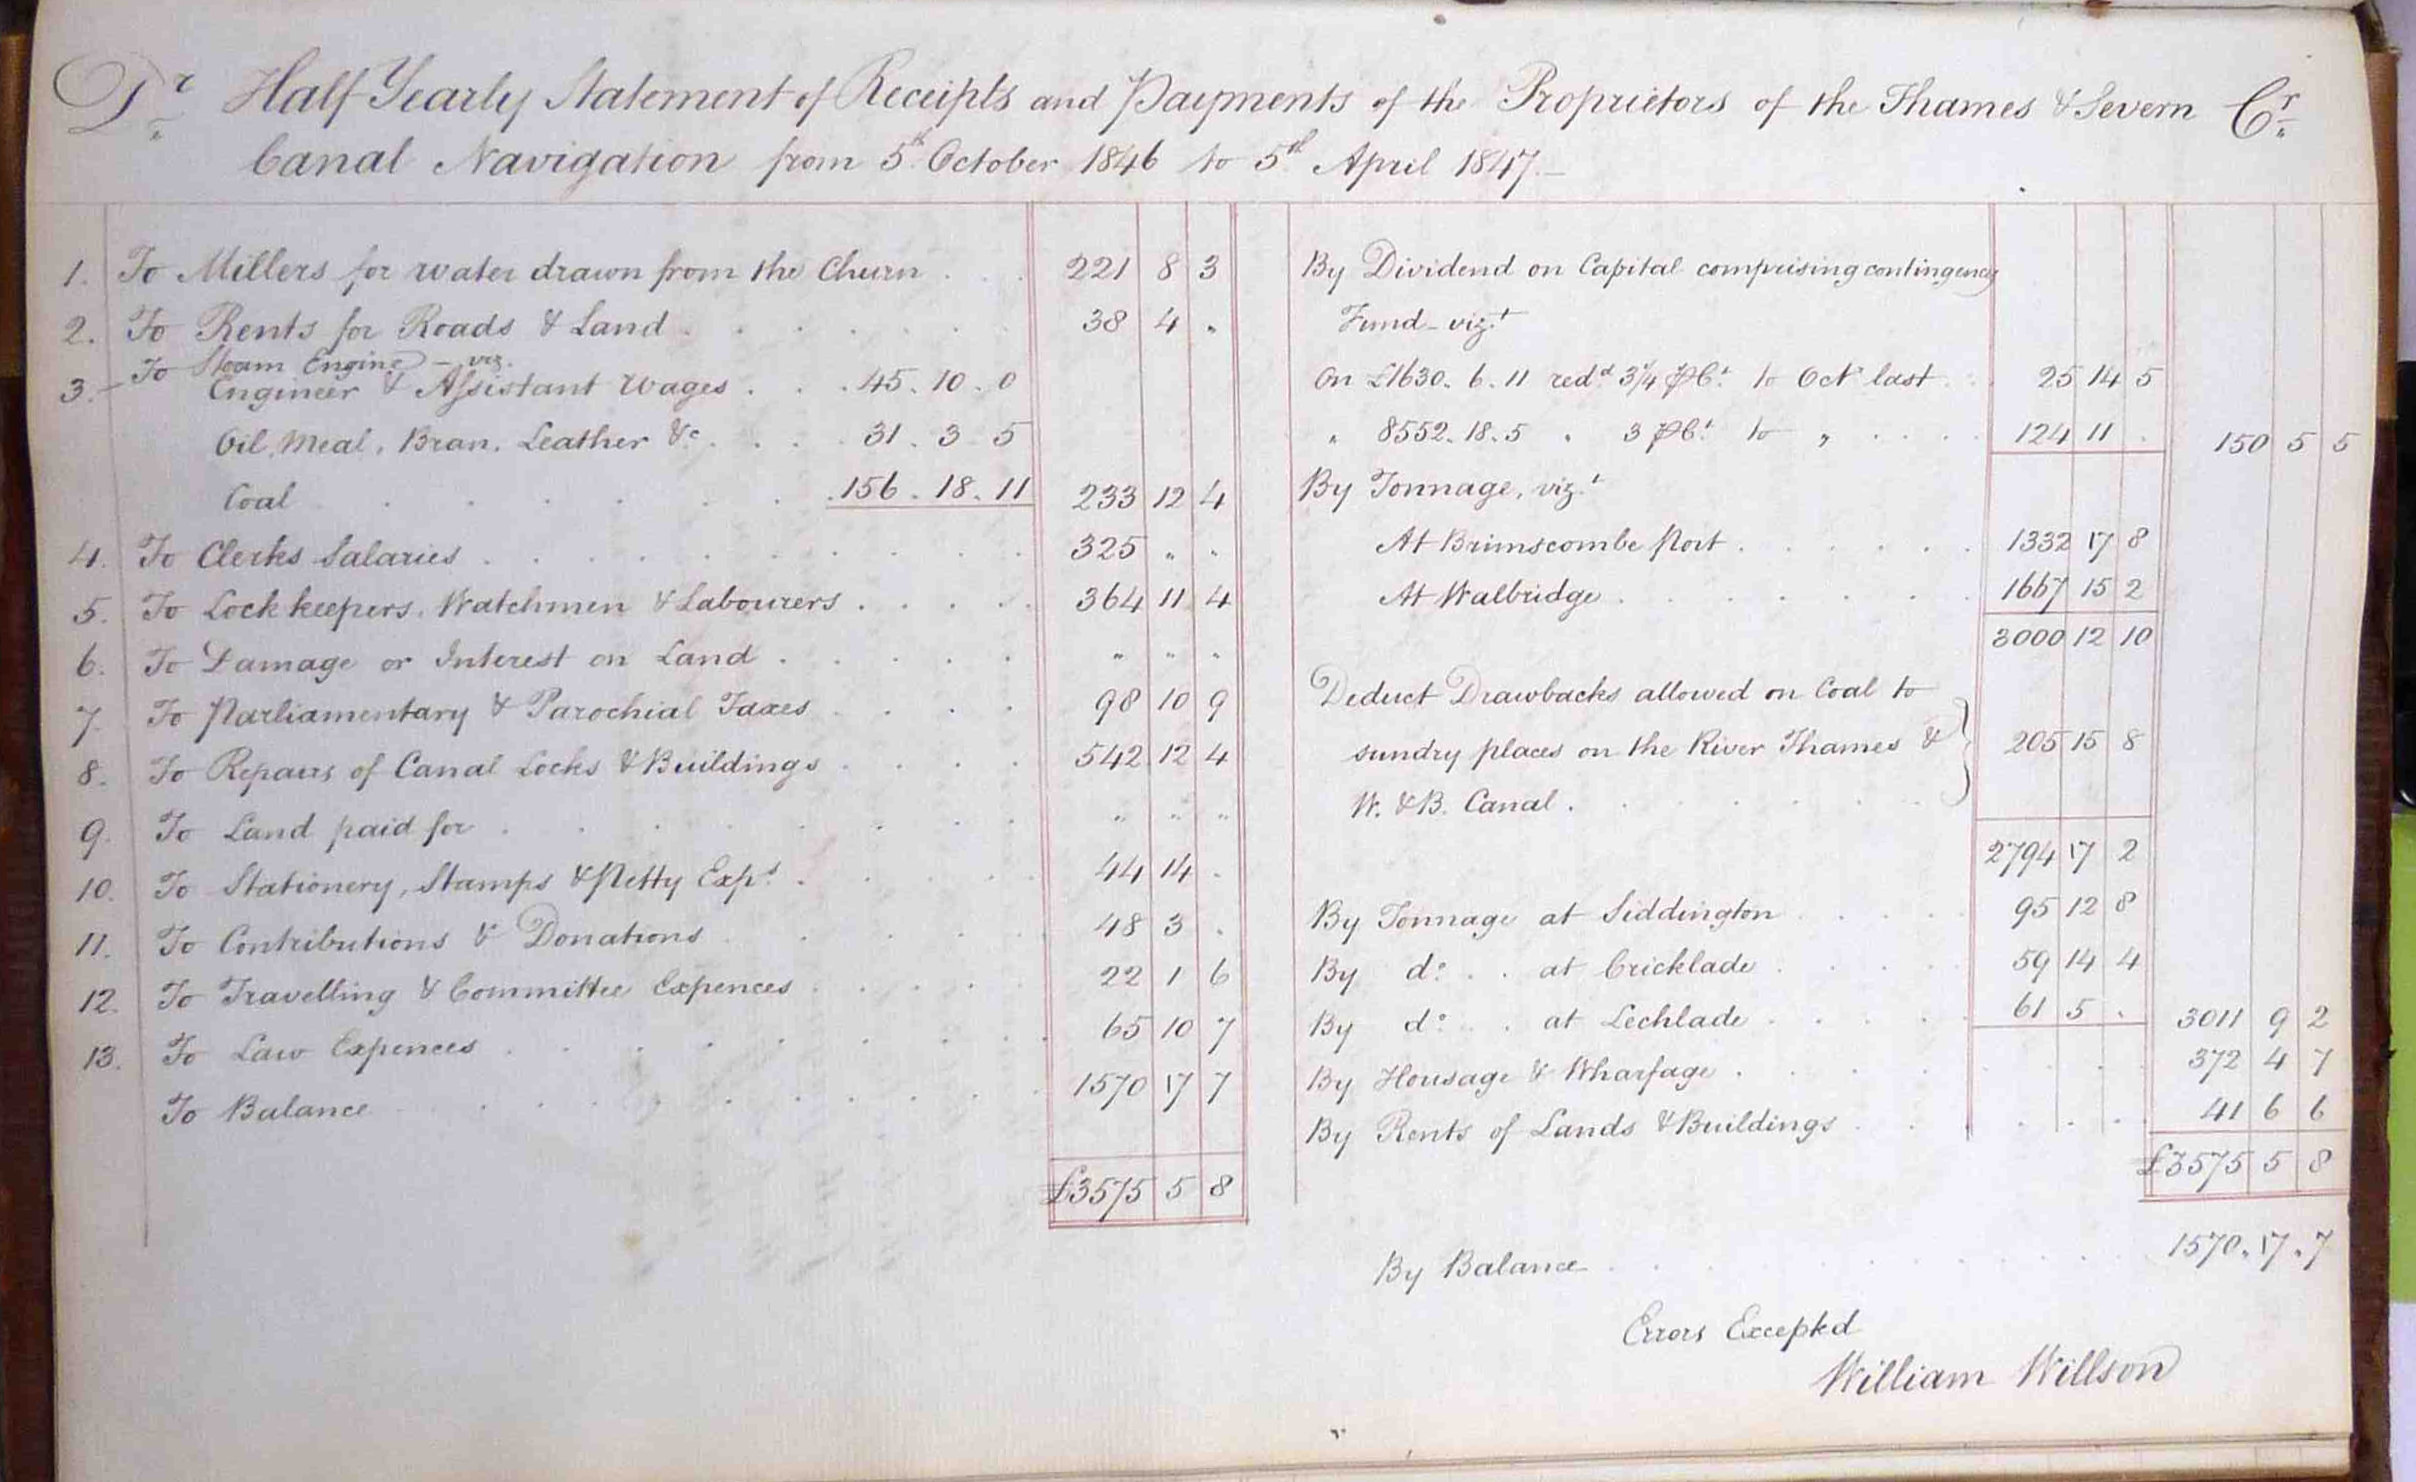 Dr Half Yearly Statement of Receipts and Payments of the Proprietors of the Thames & Severn Cr
Canal Navigation from 5th October 1846 to 5th April 1847.
1. To Millers for water drawn from the Churn 221 8 3
2. To Rents for Roads & Land 38 4 "
3. To Steam Engine – viz.
Engineer & Assistant Wages 45. 10. 0
Oil, Meal, Bran, Leather &c 31. 3. 5
Coal 156. 18. 11 233 12 4
4. To Clerks Salaries 325 " "
5. To Lock keepers, Watchmen & Labourers 364 11 4
6. To Damage or Interest on Land " " "
7. To Parliamentary & Parochial Taxes 98 10 9
8. To Repairs of Canal Locks & Buildings 542 12 4
9. To Land paid for " " "
10. To Stationery, Stamps & Petty Exps. 44 14 .
11. To Contributions & Donations 48 3 .
12. To Travelling & Committee Expences 22 1 6
13. To Law Expences 65 10 7
To Balance 1570 17 7
£3575 5 8
By Dividend on Capital comprising contingency
Fund – vizt
On £1630. 6. 11 redd 3¼ P Ct. to Oct last 25 14 5
" 8552. 18. 5 " 3 P Ct. to " 124 11 . 150 5 5
By Tonnage, vizt
At Brimscombe Port 1332 17 8
At Walbridge 1667 15 2
3000 12 10
Deduct Drawbacks allowed on Coal to
sundry places on the River Thames & 205 15 8
W. & B. Canal.
2794 17 2
By Tonnage at Siddington 95 12 8
By do. at Cricklade 59 14 4
By do. at Lechlade 61 5 . 3011 9 2
By Housage & Wharfage 372 4 7
By Rents of Lands & Buildings 41 6 6
£3575 5 8
By Balance 1570. 17. 7
Errors Excepted
William Willson